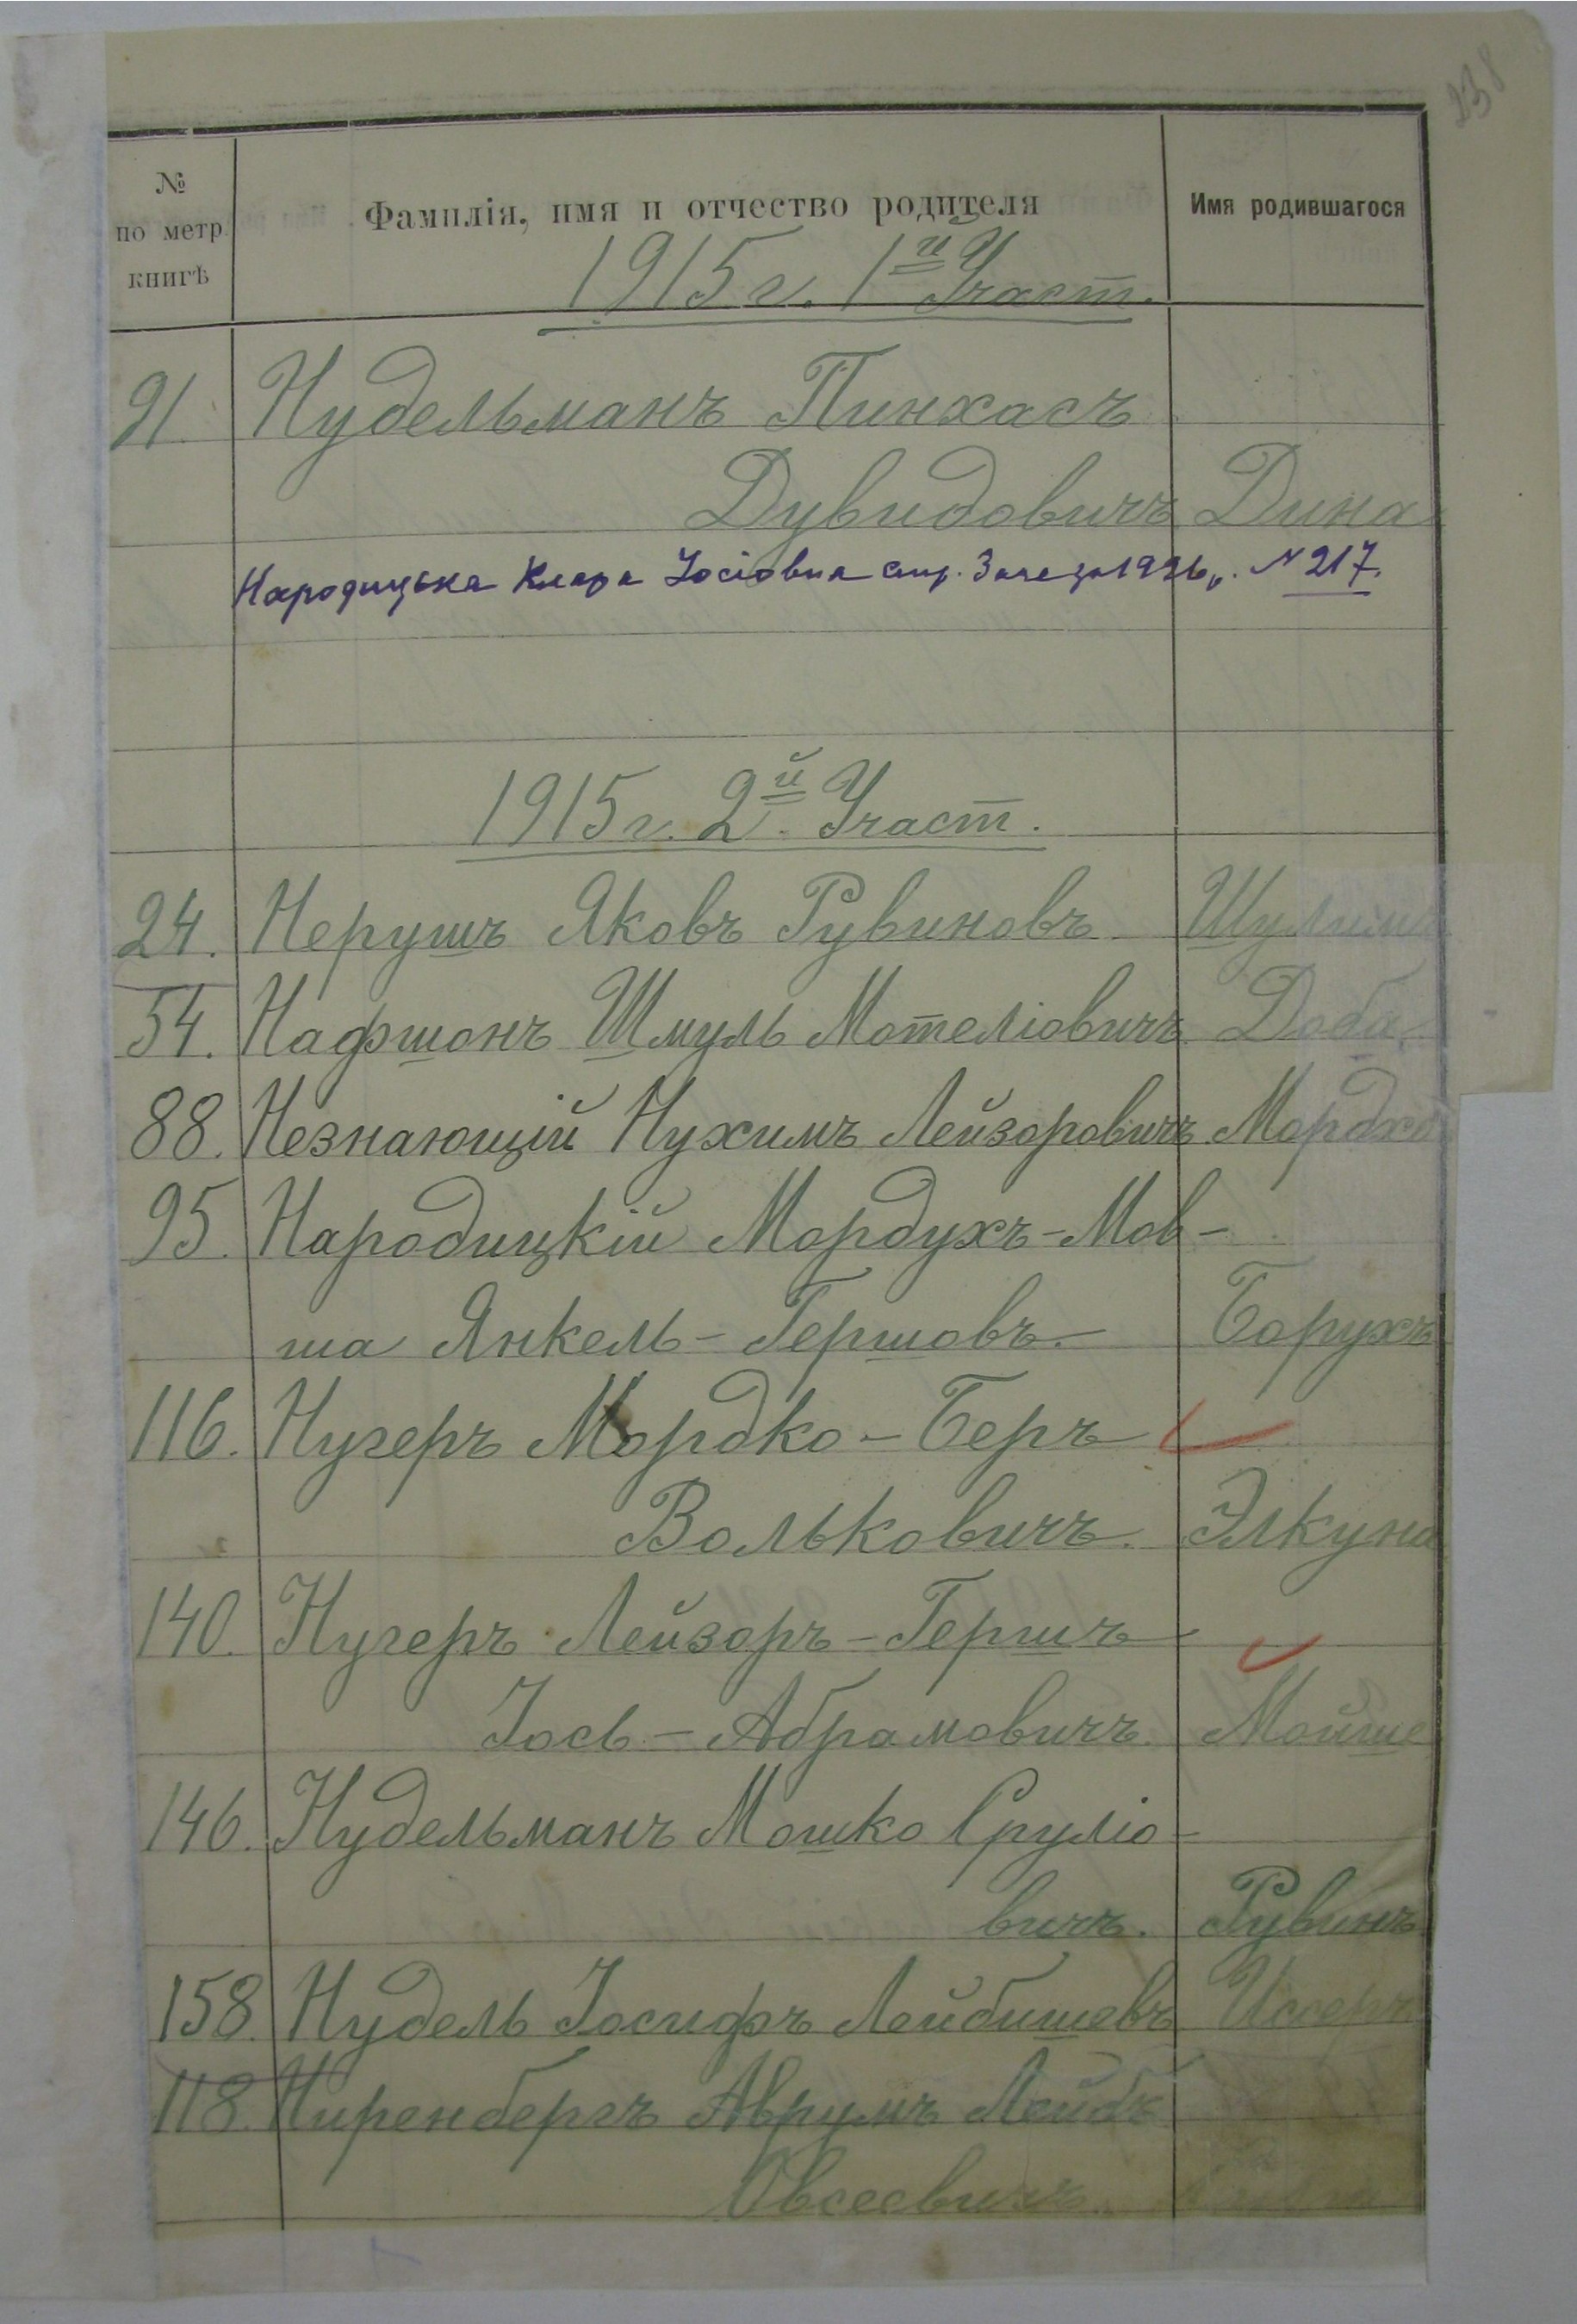 238
№
по метр.
книгѣ
Фамилія, имя и отчество родителя
Имя родившагося
1915 г. 1й Участ.
91. Нудельманъ Пинхасъ
Дувидовичъ Дина
Народицька Клара Іосіовна спр. Загс за 1926 р. № 217.
1915 г. 2й. Участ.
24. Нерушъ Яковъ Рувиновъ Шулимъ
54. Нафшонъ Шмуль Мотеліовичъ Доба
88. Незнающій Нухимъ Лейзоровичъ Мордхо
95. Народицкій Мордухъ-Мов-
ша Янкель-Гершовъ. Борухъ
116. Нугеръ Мордко-Беръ
Вольковичъ. Элкуна
140. Нугеръ Лейзоръ-Гершъ
Іось-Абрамовичъ. Мойше
146. Нудельманъ Мошко Сруліо-
вичъ. Рувинъ
158. Нудель Іосифъ Лейбишевъ Иссеръ
118. Ниренбергъ Аврумъ Лейбъ
Овсеевичъ.